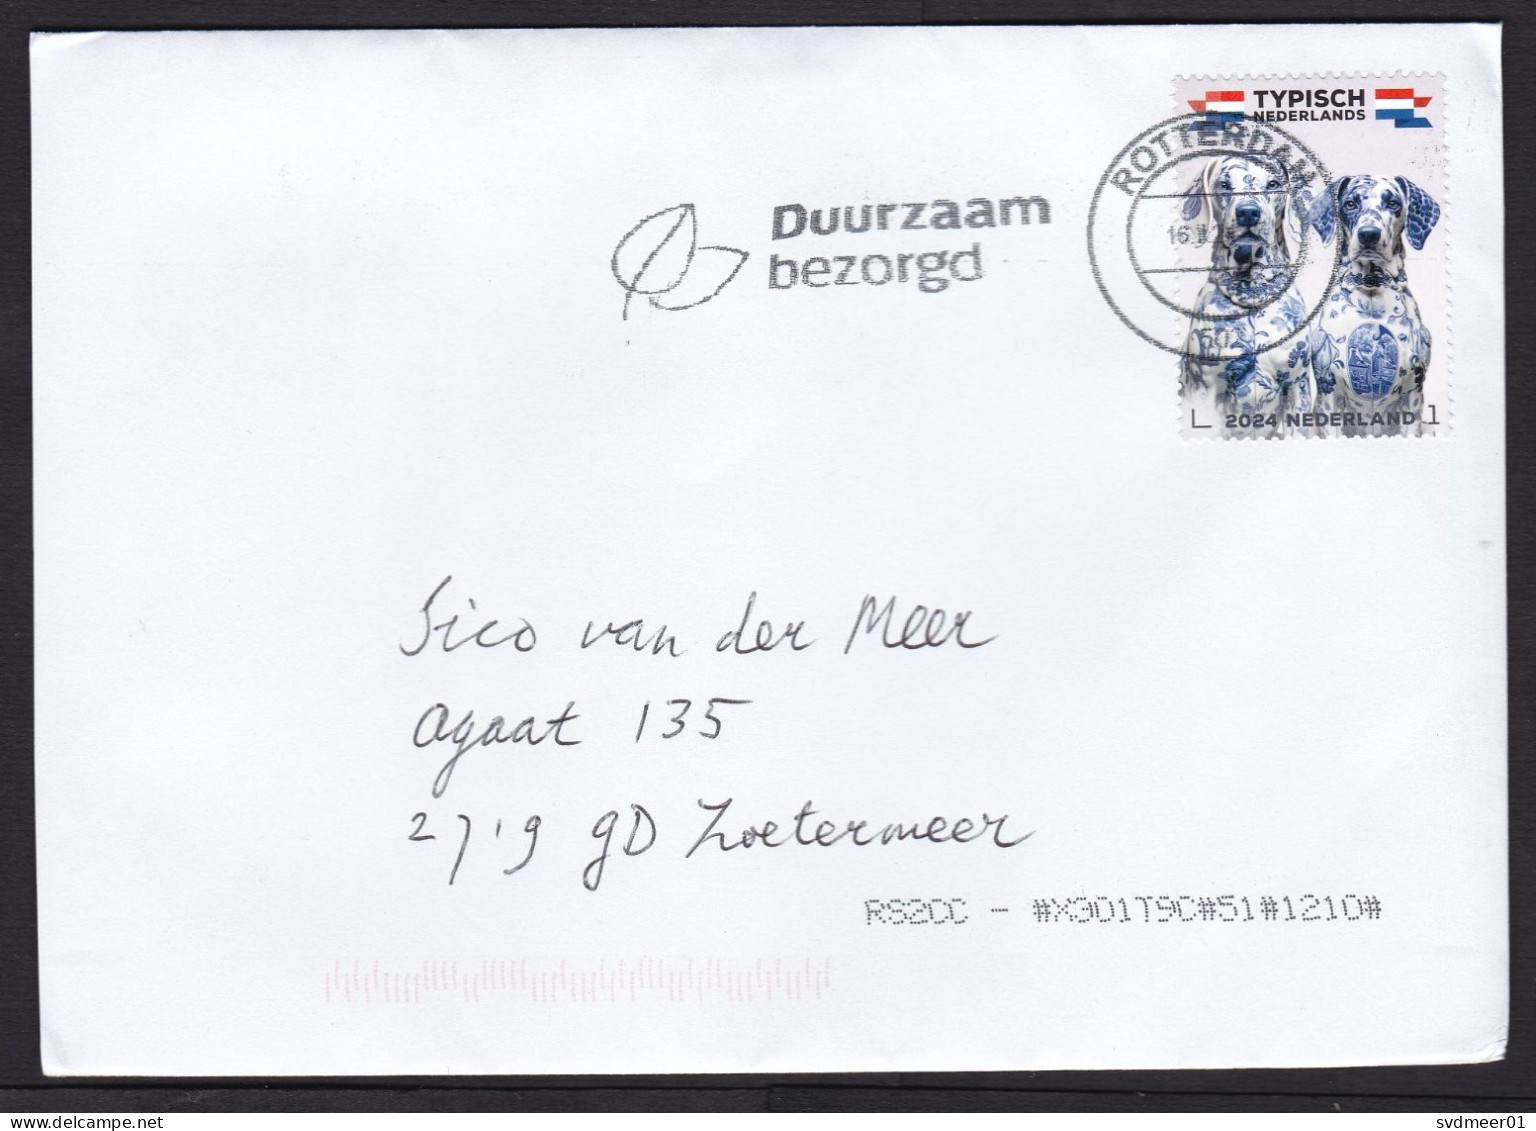 TYPISCH
NEDERLANDS
ROTTERDAM
Duurzaam
bezorgd
2024 NEDERLAND 1
Sico van der Meer
Agaat 135
2719 GD Zoetermeer
RS2DC - #X3D1T9C#51#1210#
svdmeer01